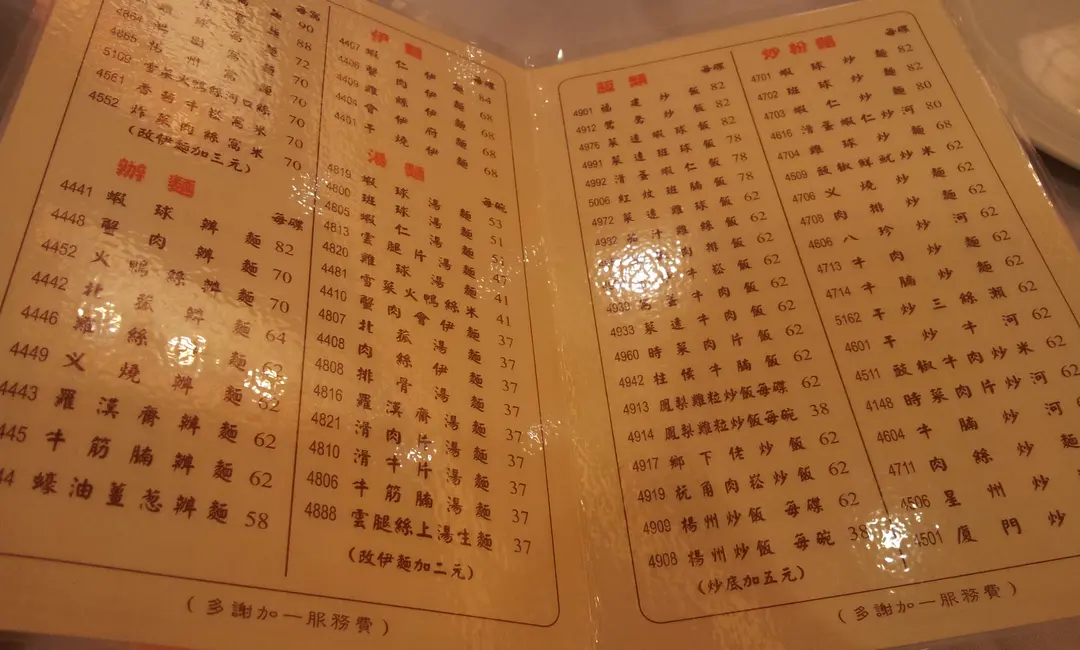 每窩
90
4864 88
4865 楊州窩麵 72
5109 雪菜火鴨絲 70
4551 香茜牛崧窩米 70
4552 炸菜肉絲窩米 70
(改伊麵加三元)
辦麵 每碟
4441 蝦球辦麵 82
4448 蟹肉辦麵 70
4452 火鴨絲辦麵 70
4442 北菰辦麵 64
4446 雞絲辦麵 62
4449 义燒辦麵 62
4443 羅漢齋辦麵 62
445 牛筋腩辦麵 62
44 蠔油薑葱辦麵 58
伊麵 每碟
4407 蝦仁伊麵 84
蟹肉伊麵 68
4409 雞絲伊麵 68
4404 會伊府麵 68
4401 干燒伊麵 68
湯麵 每碗
4819 蝦球湯麵 53
4800 班球湯麵 51
4805 蝦仁湯麵 51
4813 雲腿片湯麵 47
4820 雞球湯麵 41
4481 雪菜火鴨絲米 41
4410 蟹肉會伊麵 37
4807 北菰湯麵 37
4408 肉絲伊麵 37
4808 排骨湯麵 37
4816 羅漢齋湯麵 37
4821 滑肉片湯麵 37
4810 滑牛片湯麵 37
4806 牛筋腩湯麵 37
4888 雲腿絲上湯生麵 37
(改伊麵加二元)
(多謝加一服務費)
飯類 每碟
4901 福建炒飯 82
4912 鴛鴦炒飯 82
4976 菜遠蝦球飯 82
4991 菜遠班球飯 78
4992 滑蛋蝦仁飯 78
5006 紅炆班腩飯 78
4972 菜遠雞球飯 62
4932 茄汁雞絲飯 62
排飯 62
牛崧飯 62
4935 窩蛋牛肉飯 62
4933 菜遠牛肉飯 62
4960 時菜肉片飯 62
4942 柱侯牛腩飯 62
4913 鳳梨雞粒炒飯每碟 62
4914 鳳梨雞粒炒飯每碗 38
4917 鄉下佬炒飯 62
4919 杬角肉崧炒飯 62
4909 楊州炒飯 每碟 62
4908 楊州炒飯 每碗 38
(炒底加五元)
炒粉麵 每碟
4701 蝦球炒麵 82
4702 班球炒麵 82
4703 蝦仁炒麵 80
4616 滑蛋蝦仁炒河 80
4704 雞球炒麵 68
4509 豉椒鮮魷炒米 62
4706 义燒炒麵 62
4708 肉排炒麵 62
4606 八珍炒河 62
4713 牛肉炒麵 62
4714 牛腩炒麵 62
5162 干炒三絲瀨 62
4601 干炒牛河 62
4511 豉椒牛肉炒米 62
4148 時菜肉片炒河 62
4604 牛腩炒河
4711 肉絲炒麵
4506 星州炒
4501 廈門炒
(多謝加一服務費)